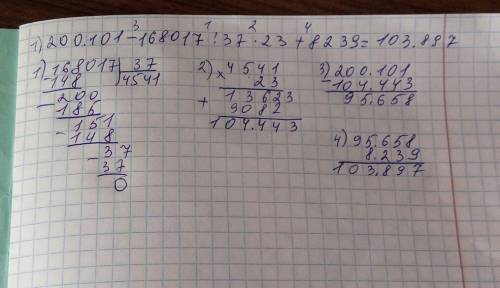 3 1 2 4
1) 200.101-168017:37·23+8239=103.897
1) 168017 | 37
148 | 4541
- 200
185
- 151
148
- 37
37
0
2) × 4541
23
+ 13623
9082
104.443
3) 200.101
- 104.443
95.658
4) 95.658
8.239
103.897